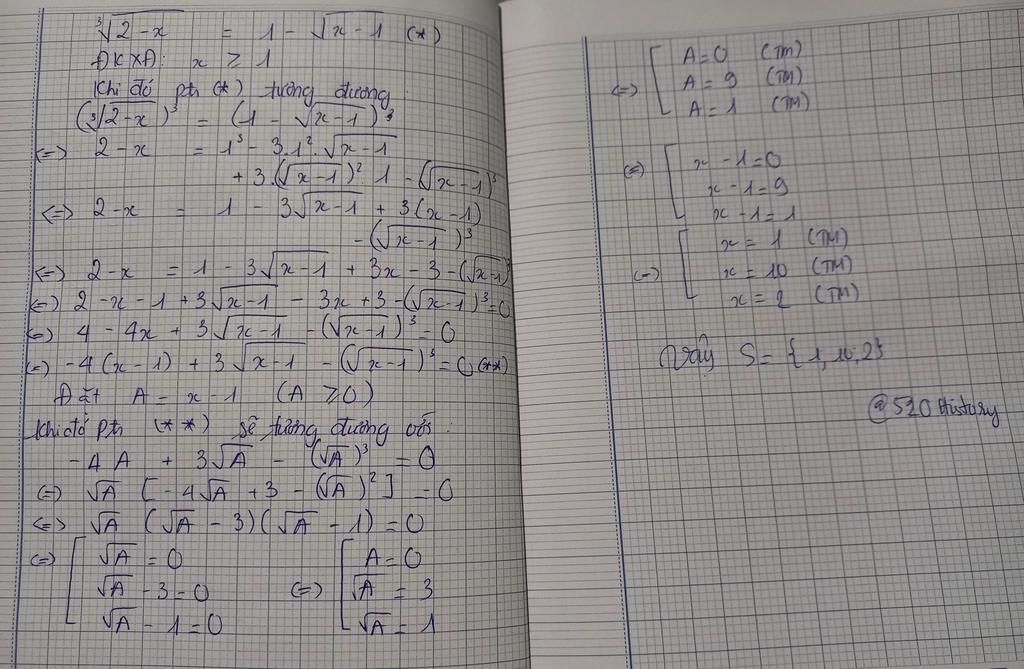 ∛(2-x) = 1 - √(x-1) (*)
ĐKXĐ: x ≥ 1
Khi đó pt (*) tương đương
(∛(2-x))³ = (1 - √(x-1))³
<=> 2-x = 1³ - 3.1².√(x-1)
+ 3.(√(x-1))² 1 - (√(x-1))³
<=> 2-x = 1 - 3√(x-1) + 3(x-1)
- (√(x-1))³
<=> 2-x = 1 - 3√(x-1) + 3x - 3 - (√(x-1))³
<=> 2-x-1 + 3√(x-1) - 3x + 3 - (√(x-1))³ = 0
<=> 4 - 4x + 3√(x-1) - (√(x-1))³ = 0
<=> -4(x-1) + 3√(x-1) - (√(x-1))³ = 0 (**)
Đặt A = x-1 (A ≥ 0)
Khi đó pt (**) sẽ tương đương với:
-4A + 3√A - (√A)³ = 0
<=> √A [-4√A + 3 - (√A)²] = 0
<=> √A (√A - 3)(√A - 1) = 0
<=> [ √A = 0
√A - 3 = 0
√A - 1 = 0
<=> [ A = 0
√A = 3
√A = 1
<=> [ A = 0 (TM)
A = 9 (TM)
A = 1 (TM)
<=> [ x - 1 = 0
x - 1 = 9
x - 1 = 1
<=> [ x = 1 (TM)
x = 10 (TM)
x = 2 (TM)
Vậy S = {1,10,2}